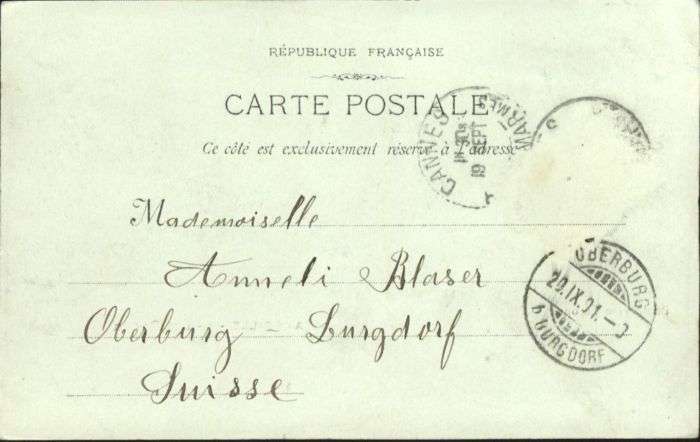 RÉPUBLIQUE FRANÇAISE
CARTE POSTALE
Ce côté est exclusivement réservé à l'adresse
CANNES
19 SEPT
OBERBURG
20.IX.01.
BURGDORF
Mademoiselle
Anneli Blaser
Oberburg - Burgdorf
Suisse